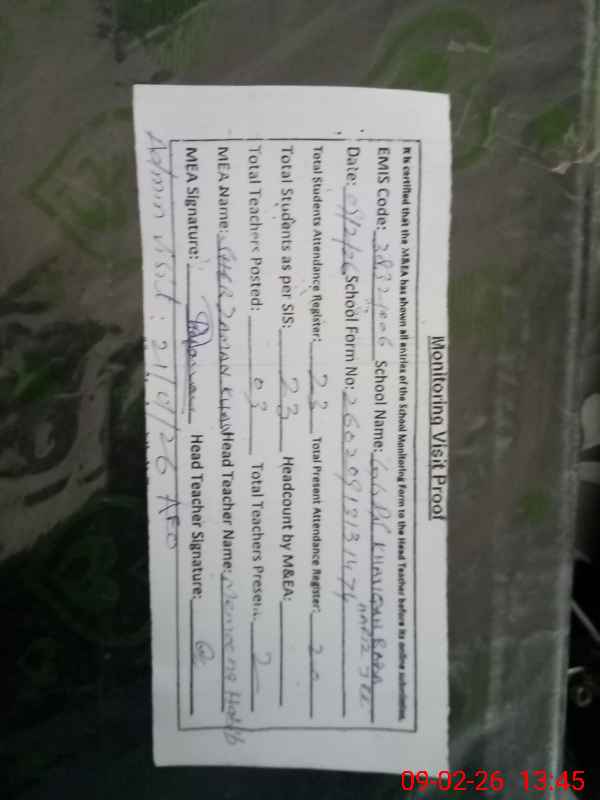 Monitoring Visit Proof
It is certified that the M&EA has shown all entries of the School Monitoring Form to the Head Teacher before its online submission.
EMIS Code: 38321006 School Name:
Date: 09/2/26 School Form No:
Total Students Attendance Register: 23 Total Present Attendance Register: 20
Total Students as per SIS: 23 Headcount by M&EA:
Total Teachers Posted: 03 Total Teachers Present: 2
MEA Name: SHER ZAMAN KHAN Head Teacher Name: Habib
MEA Signature: Head Teacher Signature:
Admin Visit: 21/01/26 AEO
09-02-26 13:45